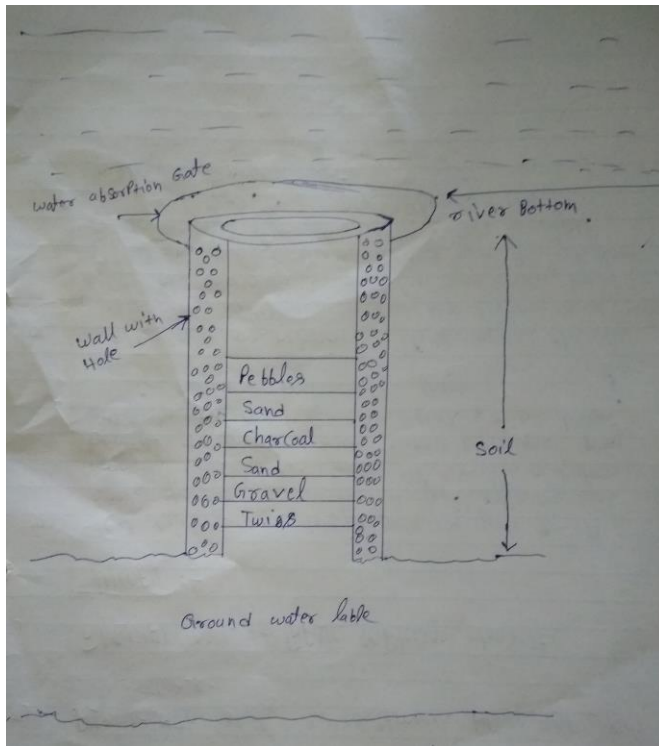 water absorption Gate
river Bottom
wall with
Hole
Pebbles
Sand
Charcoal
Sand
Gravel
Twigs
Soil
Ground water lable